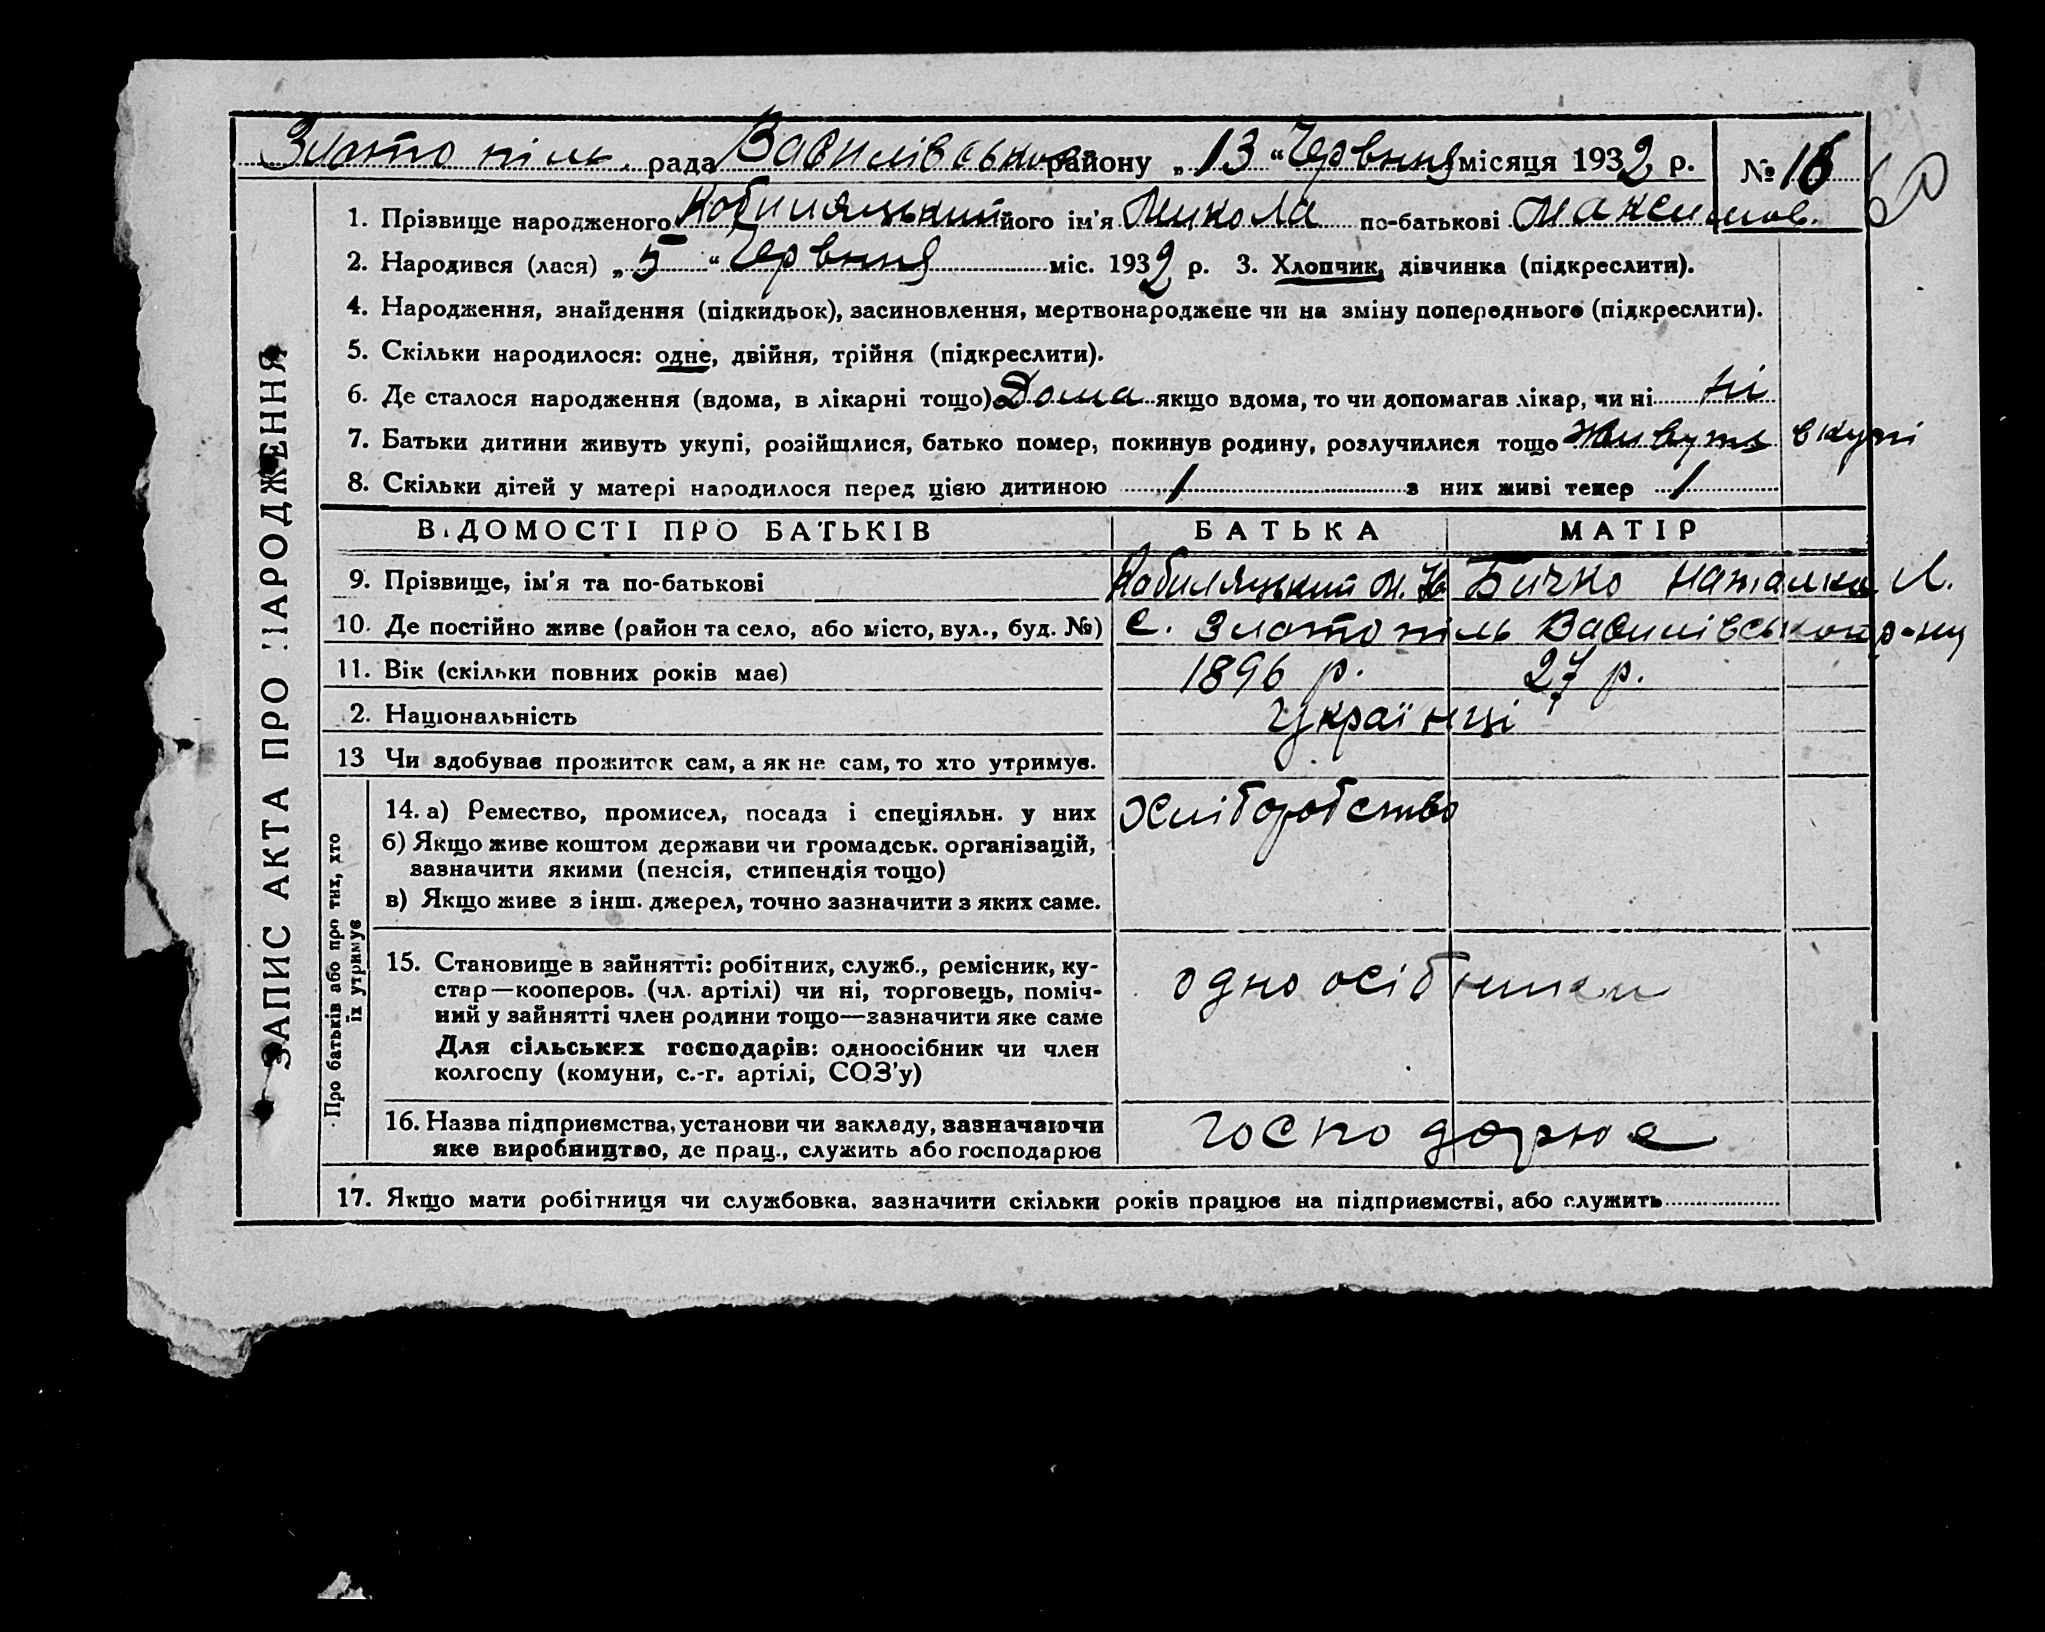 Злотопіль рада Василівського району „13“ Червня місяця 1932 р. № 16
60
1. Прізвище народженого Кобиляцький його ім'я Микола по-батькові Максимов.
2. Народився (лася) „5“ Червня міс. 1932 р. 3. Хлопчик, дівчинка (підкреслити).
4. Народження, знайдення (підкидьок), засиновлення, мертвонароджене чи на зміну попереднього (підкреслити).
5. Скільки народилося: одне, двійня, трійня (підкреслити).
6. Де сталося народження (вдома, в лікарні тощо) Дома якщо вдома, то чи допомагав лікар, чи ні ні
7. Батьки дитини живуть укупі, розійшлися, батько помер, покинув родину, розлучилися тощо живуть вкупі
8. Скільки дітей у матері народилося перед цією дитиною 1 з них живі тепер 1
ЗАПИС АКТА ПРО НАРОДЖЕННЯ
ВІДОМОСТІ ПРО БАТЬКІВ БАТЬКА МАТІР
9. Прізвище, ім'я та по-батькові Кобиляцький М. Бичко Наталка Л.
10. Де постійно живе (район та село, або місто, вул., буд. №) с. Злотопіль Василівського р-ну
11. Вік (скільки повних років має) 1896 р. 27 р.
2. Національність Українці
13 Чи здобуває прожиток сам, а як не сам, то хто утримує.
Про батьків або про тих, хто
їх утримує
14. а) Ремество, промисел, посада і спеціяльн. у них Хліборобство
б) Якщо живе коштом держави чи громадськ. організацій,
зазначити якими (пенсія, стипендія тощо)
в) Якщо живе з інш. джерел, точно зазначити з яких саме.
15. Становище в зайнятті: робітник, служб., ремісник, ку-
стар—кооперов. (чл. артілі) чи ні, торговець, поміч-
ний у зайнятті член родини тощо—зазначити яке саме
одноосібники
Для сільських господарів: одноосібник чи член
колгоспу (комуни, с.-г. артілі, СОЗ'у)
16. Назва підприємства, установи чи закладу, зазначаючи
яке виробництво, де прац., служить або господарює
господарює
17. Якщо мати робітниця чи службовка, зазначити скільки років працює на підприємстві, або служить